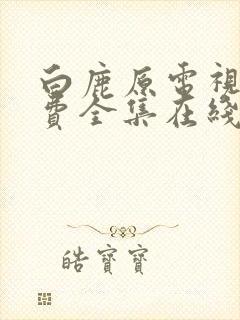 白鹿原電視
費全集在綫
皓寶寶